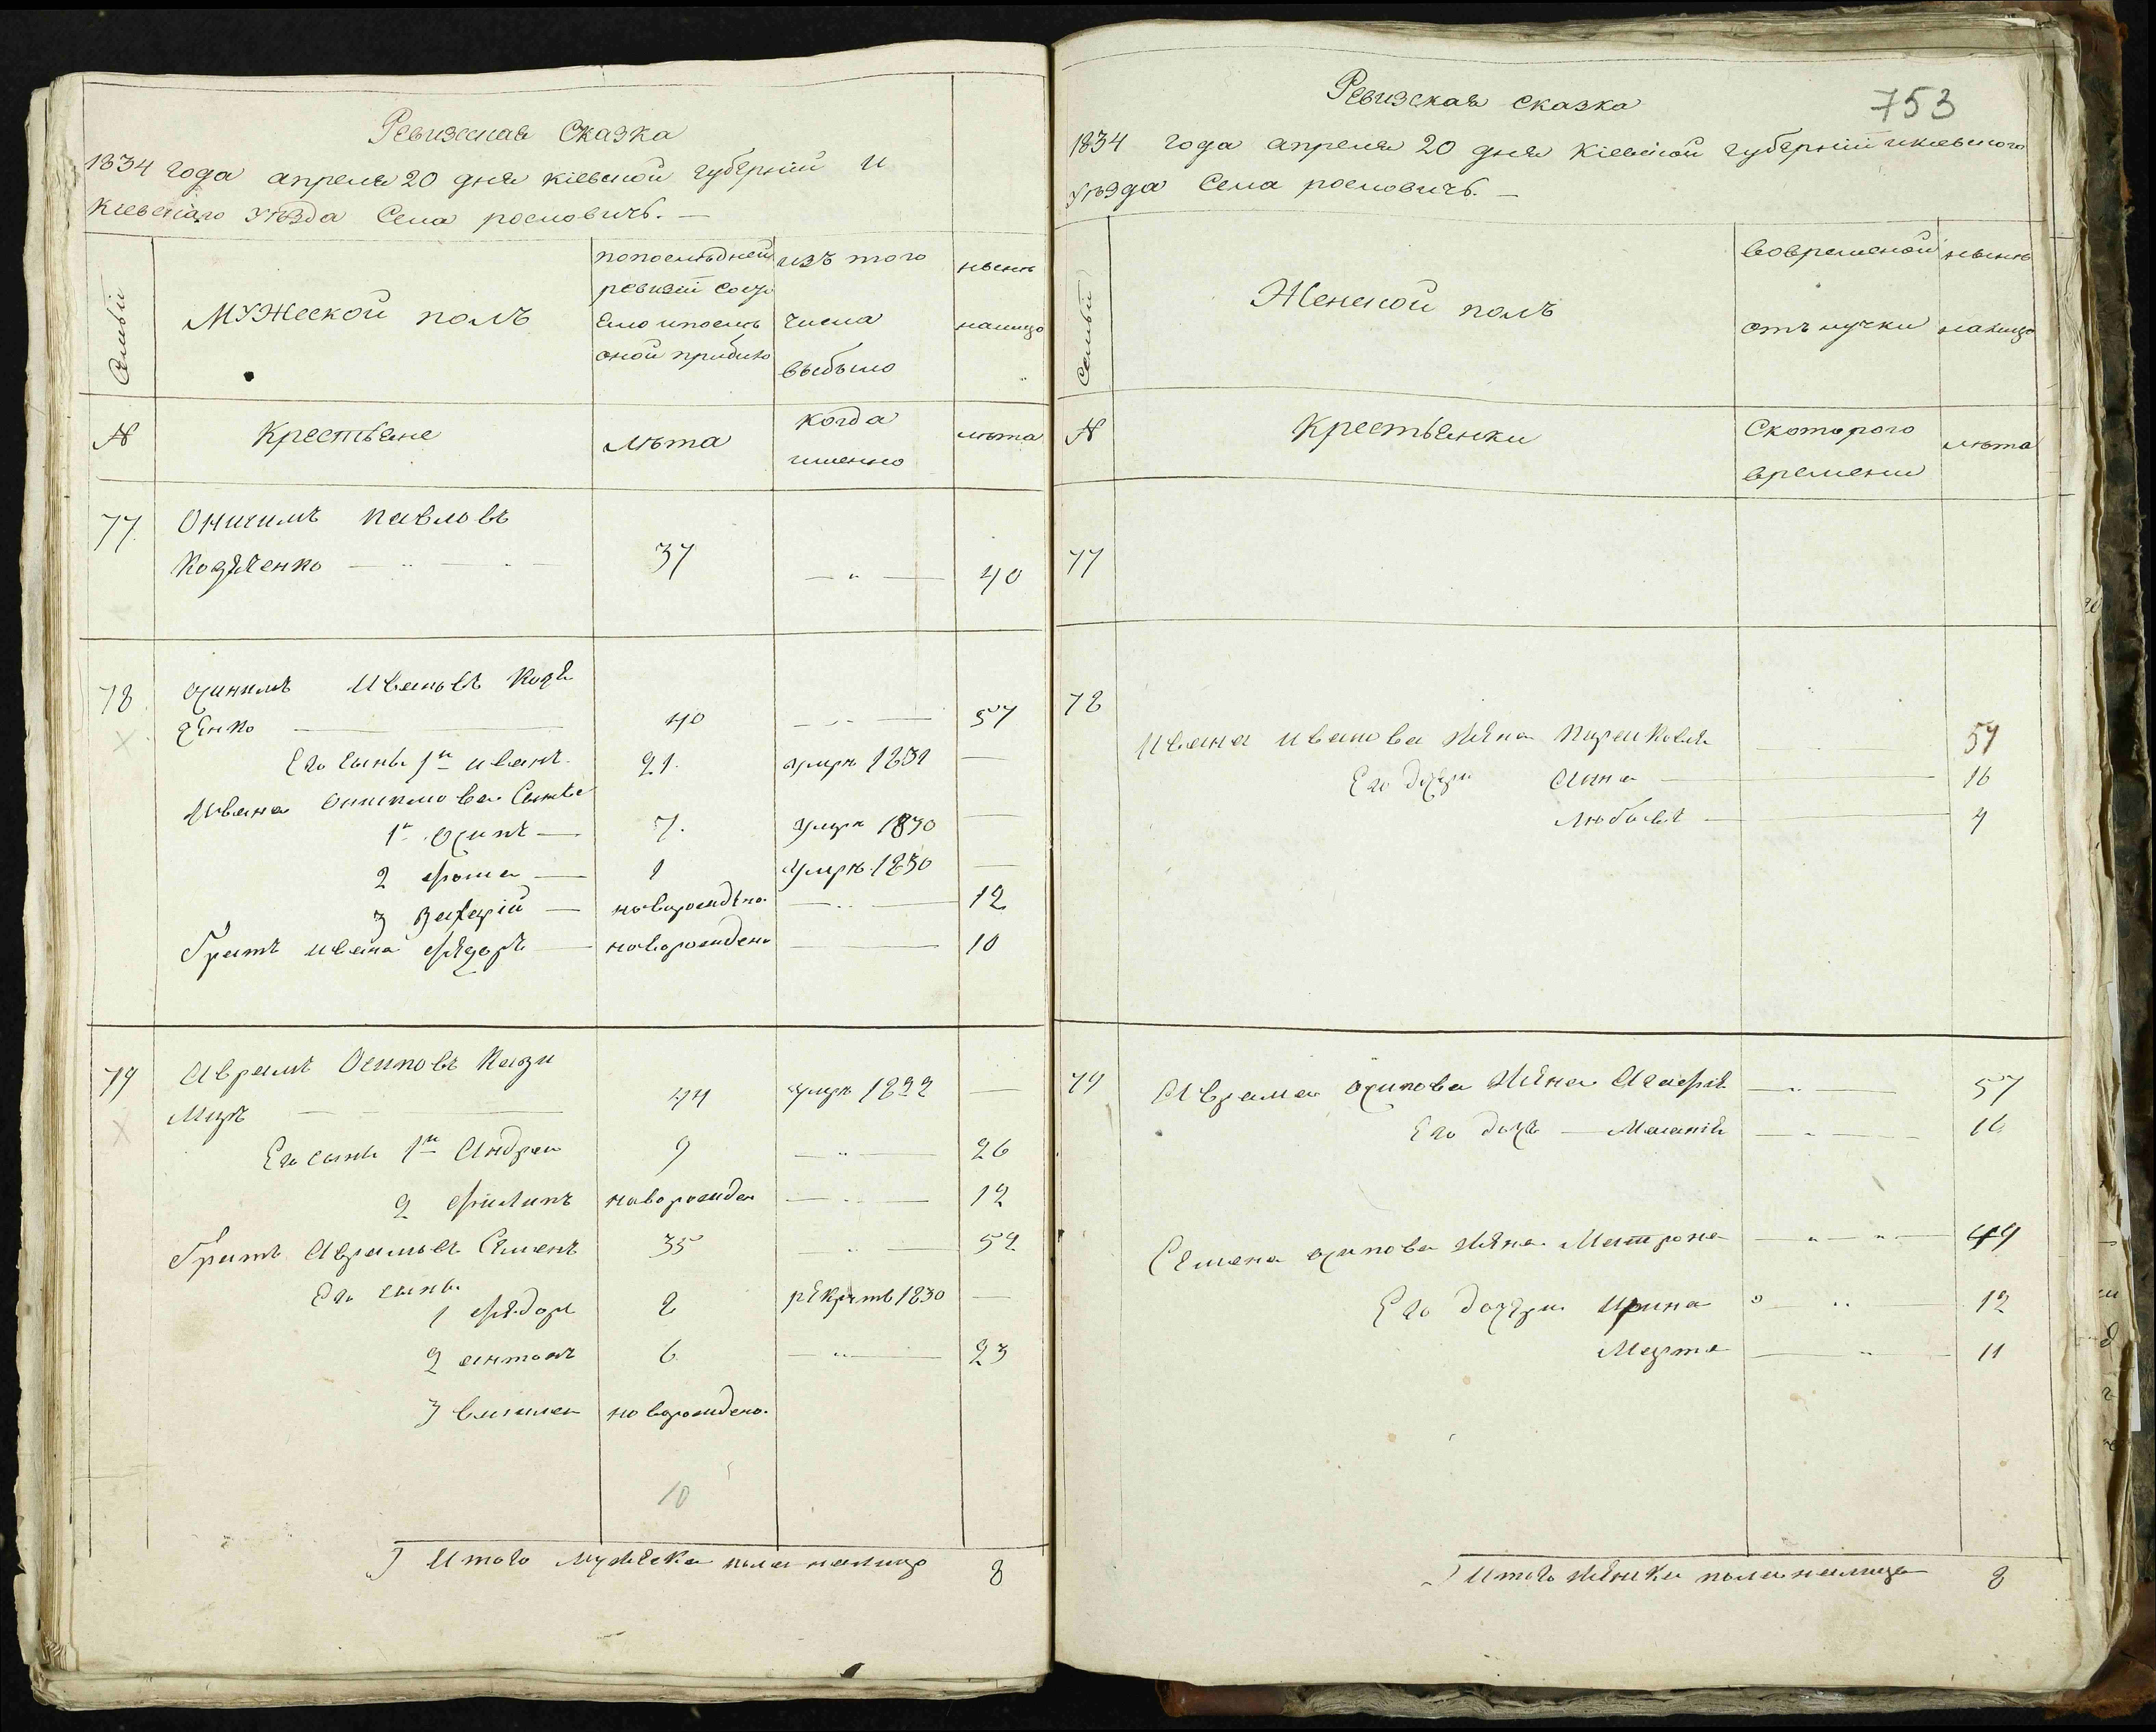 Ревизская Сказка
1834 года апреля 20 дня кіевской губерніи и
Кіевскаго уѣзда Села рословичь. —
Семьи
МУЖеской полъ
попоследней
ревизіи состо
Ело ипосль
оной прибыло
изъ того
числа
выбыло
нынѣ
налицо
№
Крестьяне
лѣта
когда
именно
лѣта
77
Павловъ
37
40
78
Ивановъ
ченко
40
57
Его сынъ 1й иванъ
21
умръ 1831
Ивана Сынъ
1й
7
умръ 1830
2 фома
1
умръ 1830
3 Захарій
новорожденъ
12
Братъ ивана фядоръ
новорожденъ
10
79
Аврамъ Осиповъ Кази
Миръ
44
умръ
Его сынъ 1й Андреи
9
26
2 филипъ
новорожден
12
Братъ Аврамовъ Сименъ
35
52
Его сынъ
1 фядоръ
8
рекрутъ 1830
2 антонъ
6
23
3
новорожденъ
10
Итого мужеска пола налицо
8
Ревизская сказка
753
1834 года апреля 20 дня кіевской губерніи икіевского
уѣзда Села рословичь. —
Семьи
Женской полъ
вовременой
отълучки
нынѣ
налицо
№
Крестьянки
Скоторого
времени
лѣта
77
78
Ивана Иванова жена
57
Его дочери Анна
16
Любовъ
79
Аврама Осипова жена Агафія
57
Его дочь — Маланія
16
Семена осипова жена Матрона
49
Его дочери Ирина
12
Марта
11
Итого женска пола налицо
8